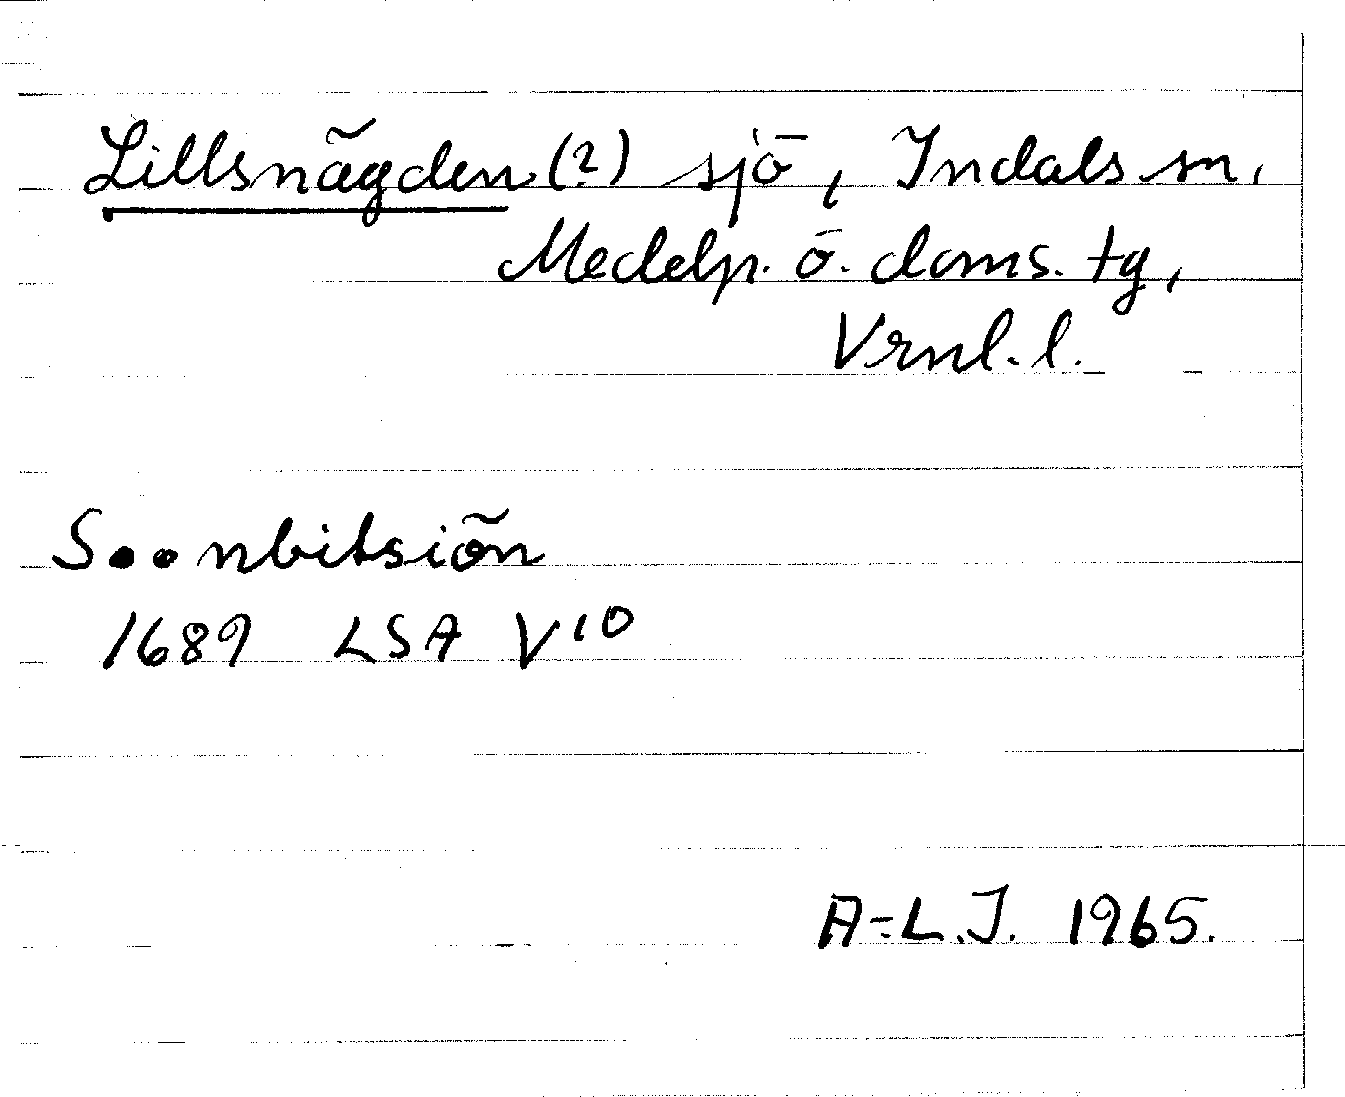 Lillsnägden (?) sjö, Indals sn,
Medelp. ö. doms. tg,
Vrnl. l.
S..nbitsiön
1689 LSA V10
A-L.J. 1965.